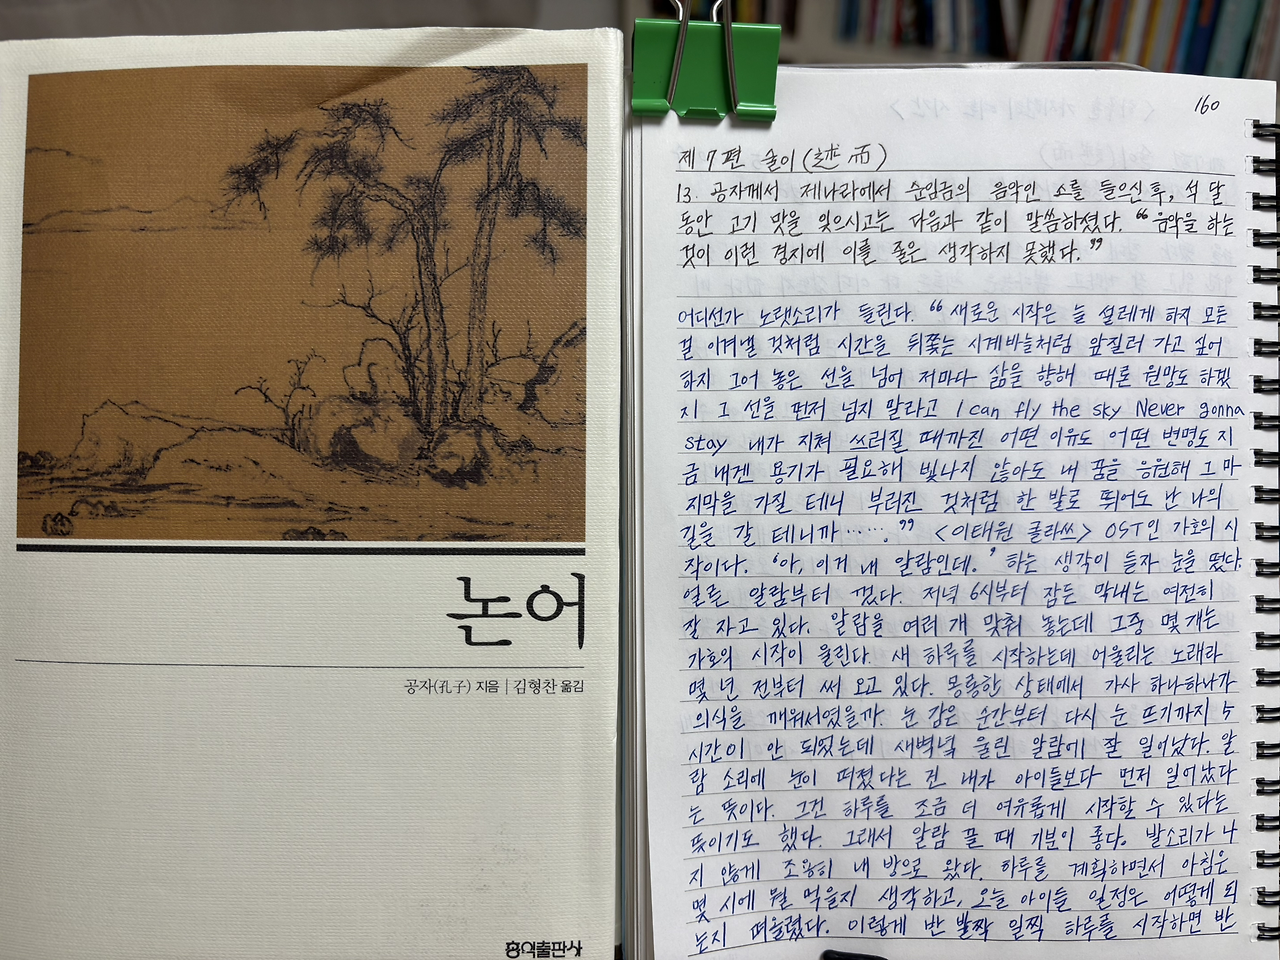 논어
공자(孔子) 지음 | 김형찬 옮김
홍익출판사
160
제 7 편 술이 (述而)
13. 공자께서 제나라에서 순임금의 음악인 소를 들으신 후, 석 달
동안 고기 맛을 잊으시고는 다음과 같이 말씀하셨다. "음악을 하는
것이 이런 경지에 이를 줄은 생각하지 못했다."
어디선가 노랫소리가 들린다. "새로운 시작은 늘 설레게 하지 모든
걸 이겨낼 것처럼 시간을 뒤쫓는 시계바늘처럼 앞질러 가고 싶어
하지 그어 놓은 선을 넘어 저마다 삶을 향해 때론 원망도 하겠
지 그 선을 먼저 넘지 말라고 I can fly the sky Never gonna
stay 내가 지쳐 쓰러질 때까진 어떤 이유도 어떤 변명도 지
금 내겐 용기가 필요해 빛나지 않아도 내 꿈을 응원해 그 마
지막을 가질 테니 부러진 것처럼 한 발로 뛰어도 난 나의
길을 갈 테니까……." <이태원 클라쓰> OST인 가호의 시
작이다. '아, 이거 내 알람인데.' 하는 생각이 들자 눈을 떴다.
얼른 알람부터 껐다. 저녁 6시부터 잠든 막내는 여전히
잘 자고 있다. 알람을 여러 개 맞춰 놓는데 그중 몇 개는
가호의 시작이 울린다. 새 하루를 시작하는데 어울리는 노래라
몇 년 전부터 써 오고 있다. 몽롱한 상태에서 가사 하나하나가
의식을 깨워서였을까. 눈 감은 순간부터 다시 눈 뜨기까지 5
시간이 안 되었는데 새벽녘 울린 알람에 잘 일어났다. 알
람 소리에 눈이 떠졌다는 건 내가 아이들보다 먼저 일어났다
는 뜻이다. 그건 하루를 조금 더 여유롭게 시작할 수 있다는
뜻이기도 했다. 그래서 알람 끌 때 기분이 좋다. 발소리가 나
지 않게 조용히 내 방으로 왔다. 하루를 계획하면서 아침은
몇 시에 뭘 먹을지 생각하고, 오늘 아이들 일정은 어떻게 되
는지 떠올렸다. 이렇게 반 발짝 일찍 하루를 시작하면 반